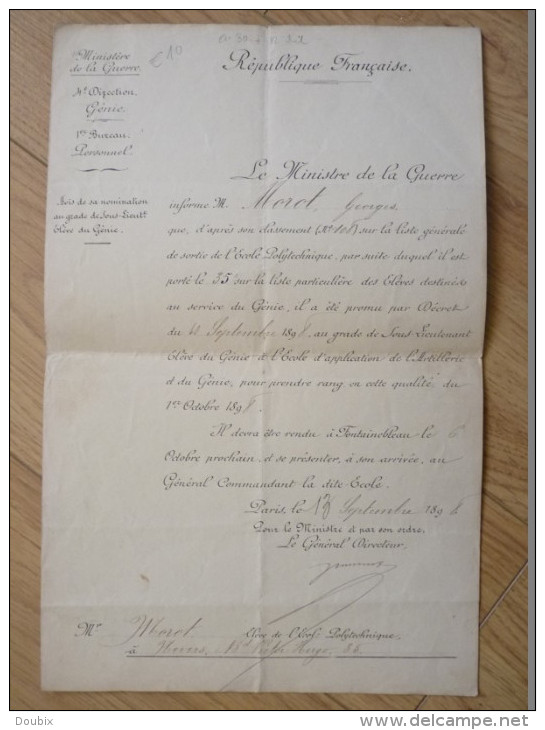 Ministère
de la Guerre
4e Direction
Génie
1er Bureau.
Personnel.
Avis de sa nomination
au grade de Sous-Lieutt
Elève du Génie.
République Française.
Le Ministre de la Guerre
informe M. Morot, Georges,
que, d'après son classement (No 108) sur la liste générale
de sortie de l'Ecole Polytechnique, par suite duquel il est
porté le 35e sur la liste particulière des Elèves destinés
au service du Génie, il a été promu par Décret
du Septembre 1898, au grade de Sous-Lieutenant
Elève du Génie à l'Ecole d'application de l'Artillerie
et du Génie, pour prendre rang en cette qualité du
1er Octobre 1898.
Il devra être rendu à Fontainebleau le 6
Octobre prochain et se présenter, à son arrivée, au
Général Commandant la dite Ecole.
Paris, le 13 Septembre 1898
Pour le Ministre et par son ordre.
Le Général Directeur,
Mr Morot Elève de l'Ecole Polytechnique.
à Bd Victor Hugo, 86.
Doubix
www.delcampe.net